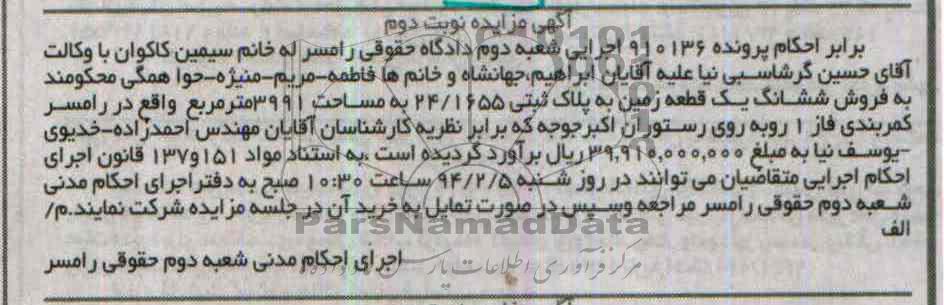 آگهی مزایده نوبت دوم
برابر احکام پرونده ۹۱۰۱۳۶ اجرایی شعبه دوم دادگاه حقوقی رامسر له خانم سیمین کاکوان با وکالت
آقای حسین گرشاسبی نیا علیه آقایان ابراهیم،جهانشاه و خانم ها فاطمه-مریم-منیژه-حوا همگی محکومند
به فروش ششدانگ یک قطعه زمین به پلاک ثبتی ۲۴/۱۶۵۵ به مساحت ۳۹۹۱مترمربع واقع در رامسر
کمربندی فاز ۱ روبه روی رستوران اکبرجوجه که برابر نظریه کارشناسان آقایان مهندس احمدزاده-خدیوی
-یوسف نیا به مبلغ ۳۹,۹۱۰,۰۰۰,۰۰۰ ریال برآورد گردیده است ،به استناد مواد ۱۵۱و۱۳۷ قانون اجرای
احکام اجرایی متقاضیان می توانند در روز شنبه ۹۴/۲/۵ ساعت ۱۰:۳۰ صبح به دفتر اجرای احکام مدنی
شعبه دوم حقوقی رامسر مراجعه وسپس در صورت تمایل به خرید آن در جلسه مزایده شرکت نمایند.م/
الف
ParsNamadData
اجرای احکام مدنی شعبه دوم حقوقی رامسر
مرکز فرآوری اطلاعات پارس نماد داده